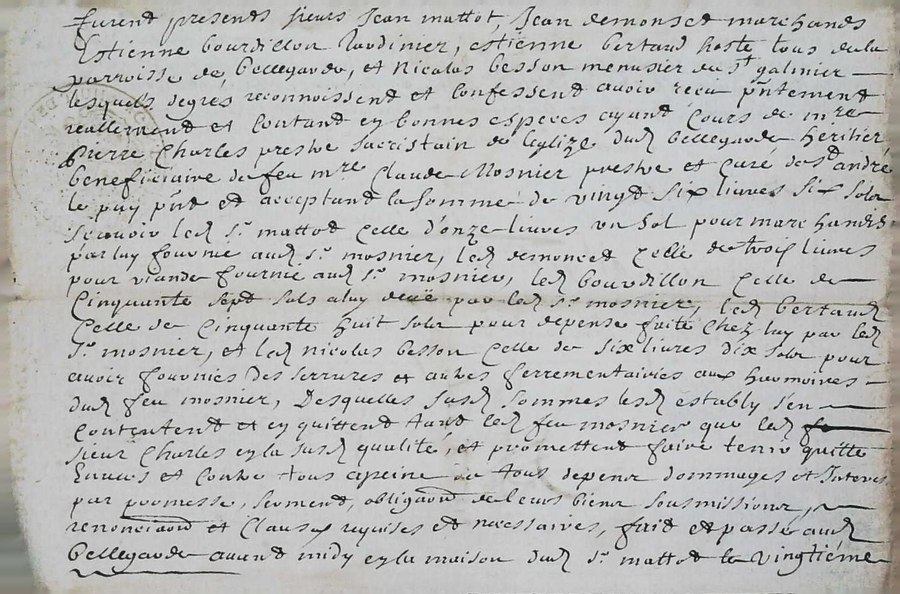 furent presents sieurs Jean mattot, Jean demonset marchands
Estienne bourdillon Jardinier, estienne bertaud hoste tous de la
parroisse de bellegarde, et Nicolas besson menusier de St galmier
lesquels degrés reconnoissent et confessent avoir recu pñtement
reallement et contant en bonnes especes ayant cours de mre
pierre Charles prestre sacristain de leglize dud bellegarde heritier
beneficiaire de feu mre Claude Mosnier prestre et curé de St andré
le puy pñt et acceptant la somme de vingt six livres six solz
scavoir led sr mattot celle d'onze livres un sol pour marchandis
par luy fournie aud sr mosnier, led demoncet celle de trois livres
pour viande fournie aud sr mosnier, led bourdillon celle de
cinquante sept sols a luy deüe par led sr mosnier, led bertaud
celle de cinquante huit solz pour depense faite chez luy par led
sr mosnier, et led nicolas besson celle de six livres dix solz pour
avoir fournies des serrures et autres ferrementairies aux harmoires
dud feu mosnier, Desquelles susd sommes lesd estably s'en
contentent et en quittent tant led feu mosnier que led
sieur Charles en la susd qualité, et promettent faire tenir quitte
Envers et contre tous a peine de tous depens dommages et Interes
par promesse, serment, obligaõn de leurs biens sousmissions,
renonciaõn et Clauses requises et necessaires, fait et passé aud
bellegarde avant midy en la maison dud sr mattot le vingtiéme